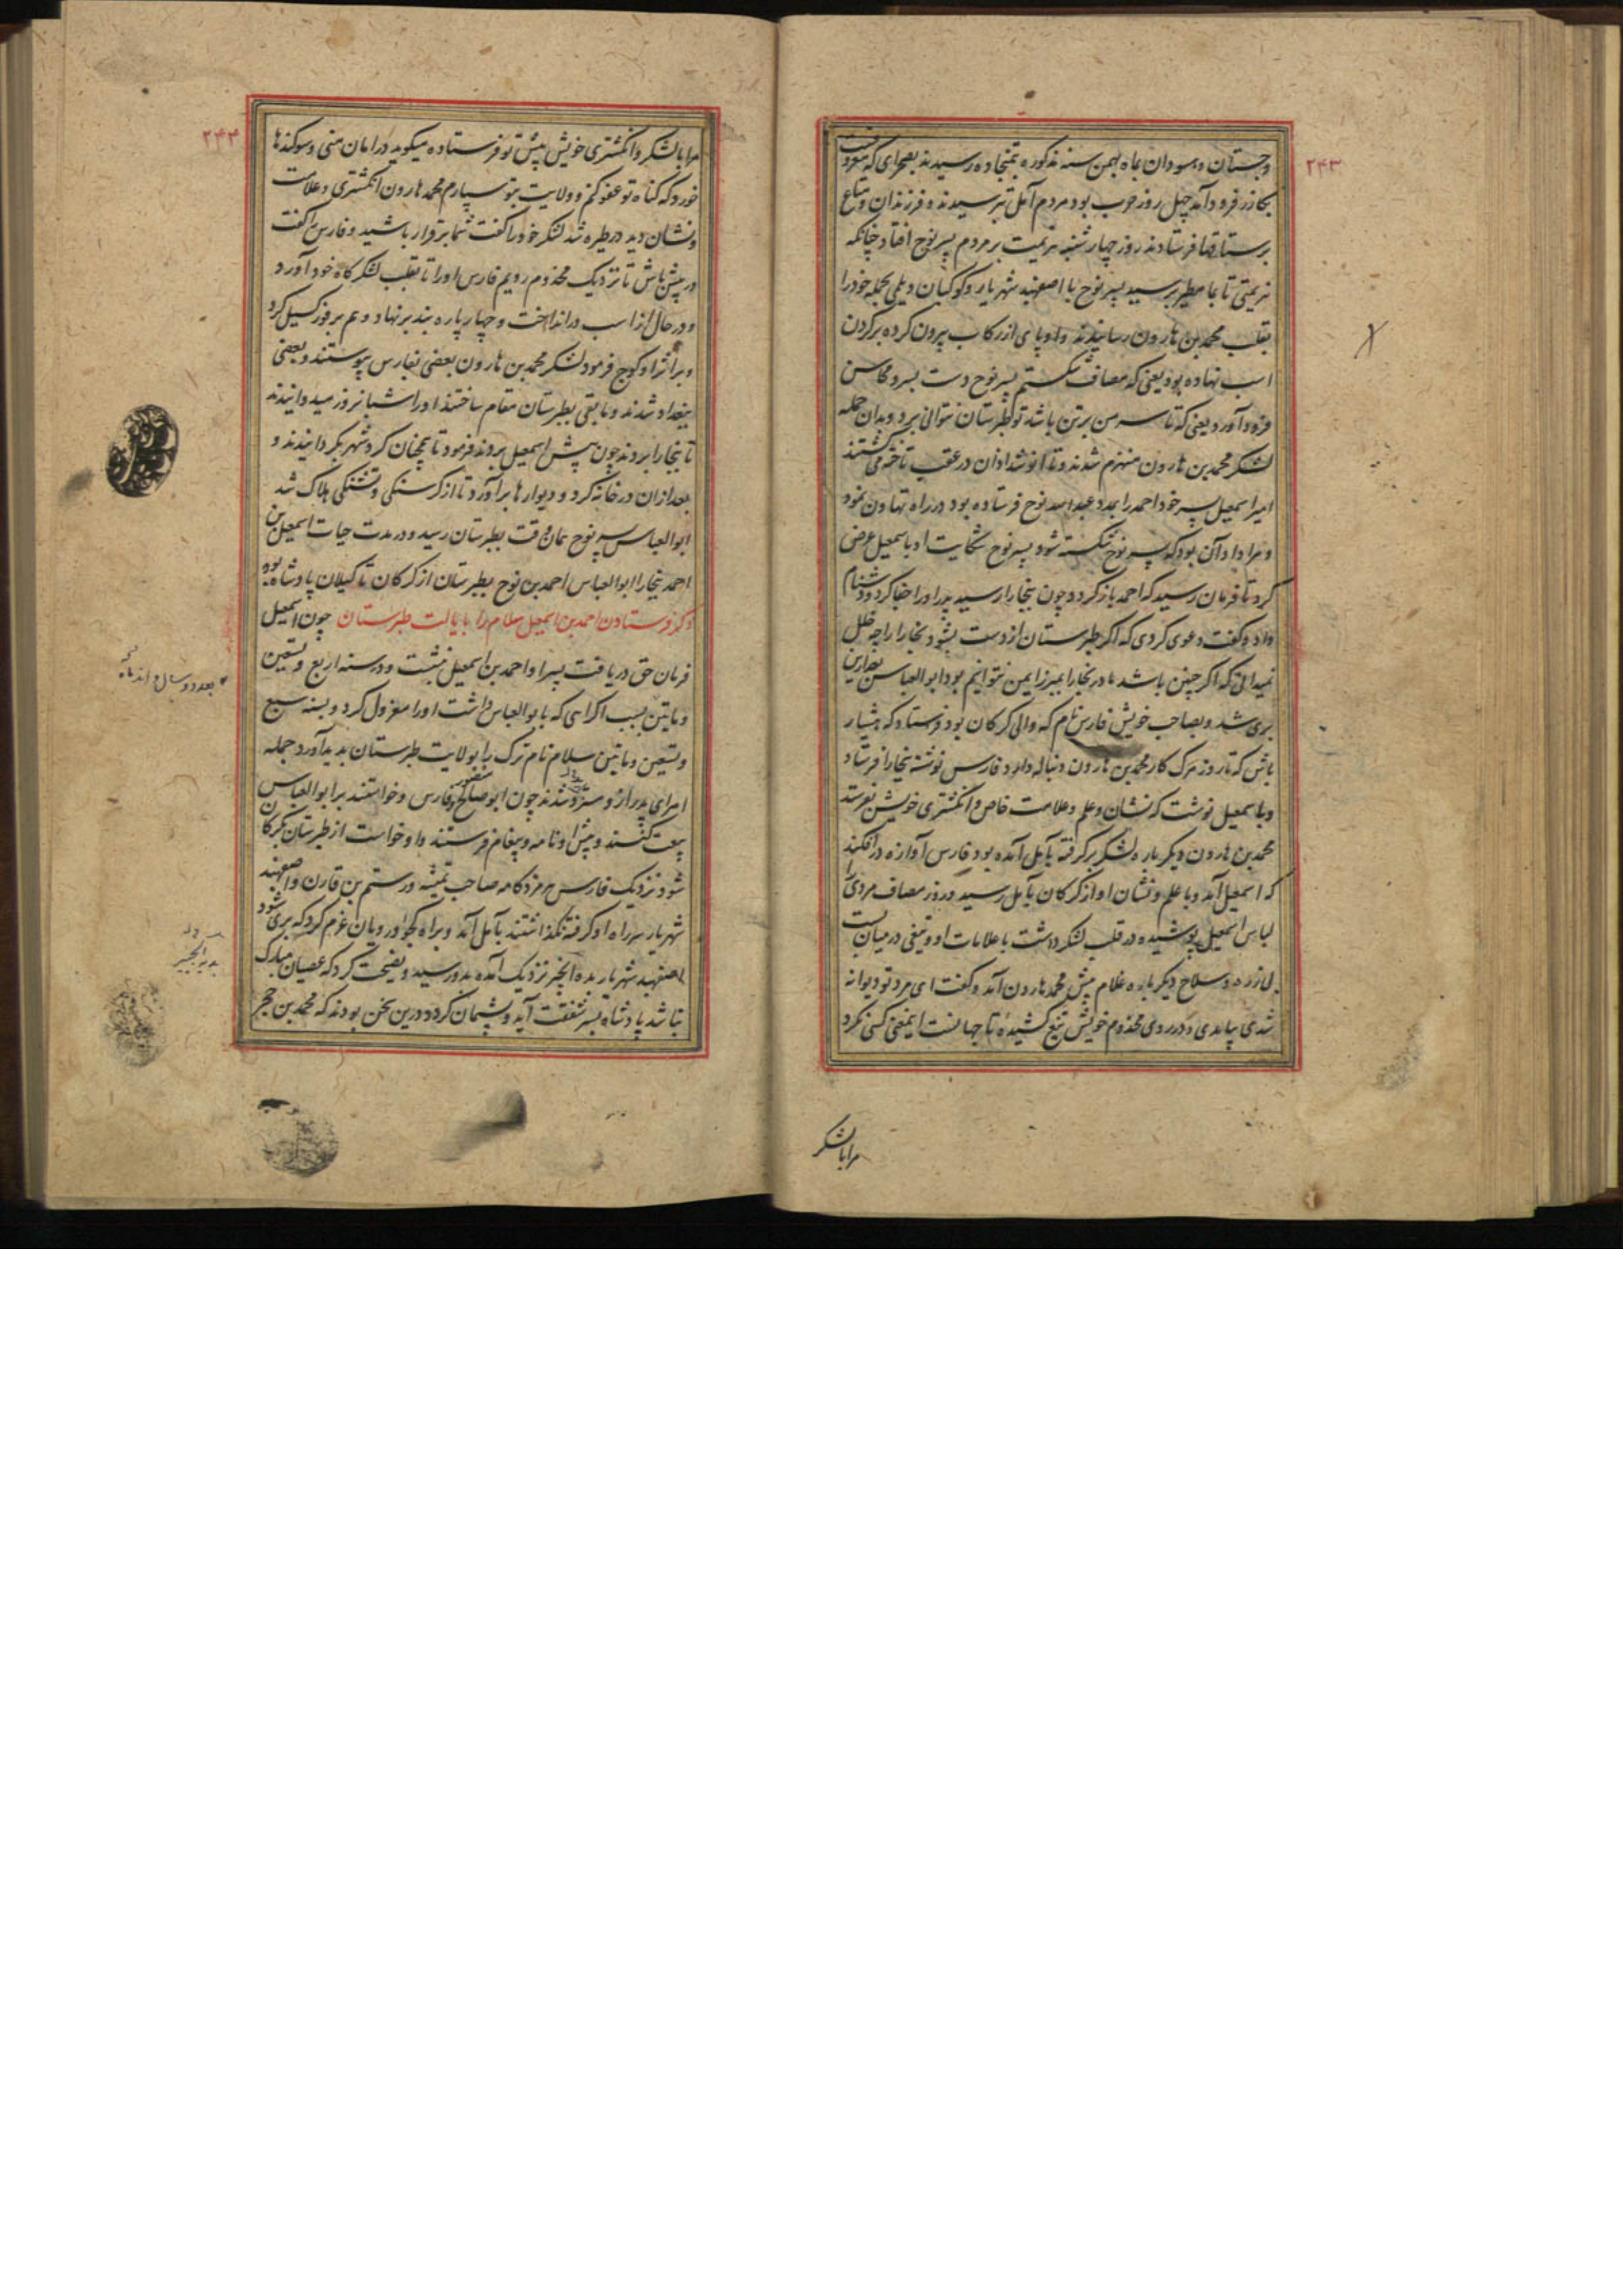 ۲۴۳
وجستان وهسودان بماه بهمن سنه مذکوره بتمنجاده رسیدند بصحرای که معروفست
بکازر فرود آمد چهل روز حرب بود مردم آمل بترسیدند و فرزندان و متاع
برستاقها فرستادند روز چهارشنبه هزیمت بر مردم پسر نوح افتاد چنانکه
هزیمتی تا بمامطیر برسید پسر نوح با اصفهبد شهریار و کوکبان دیلمی بجمله خود را
بقلب محمد بن هارون رسانیدند و او پای از رکاب بیرون کرده بر کردن
اسب نهاده بود یعنی که مصاف شکستم پسر نوح دست بسر و محاسن
فرود آورد یعنی که تا سر من بر تن باشد تو طبرستان نتوانی برد و بدان حمله
لشکر محمد بن هارون منهزم شدند و تا انوشدادان در عقب تاخته می کشتند
امیر اسمعیل پسر خود احمد را بمدد عبدالله نوح فرستاده بود در راه تهاون نمود
و مراد او آن بود که پسر نوح شکسته شود پسر نوح شکایت او با سمعیل عرض
کرد تا فرمان رسید که احمد باز کردد چون ببخارا رسید پدر او را جفا کرد و دشنام
داد و کفت دعوی کردی که اکر طبرستان از دست بشود بخارا را چه خلل
نمیدانی که اکر چنین باشد مادر بخارا بمبرز ایمن نتوانیم بود ابوالعباس بعد ازین
بری شد و بصاحب خویش فارس نام که والی کرکان بود فرستاد که هشیار
باش که تا روز مرک کار محمد بن هارون دنباله دارد فارس نوشته ببخارا فرستاد
وباسمعیل نوشت که نشان و علم و علامت خاص و انکشتری خویش بفرستد
محمد بن هارون دیکر باره لشکر بر کرفته بآمل آمده بود فارس آوازه درافکند
که اسمعیل آمد و با علم و نشان او از کرکان بآمل رسید و روز مصاف مردی را
لباس اسمعیل پوشیده در قلب لشکر داشت با علامات او و تیغی در میان بست
بی زره و سلاح دیکر باره غلام پیش محمد هارون آمد و کفت ای مرد تو دیوانه
شدی بیامدی و در روی مخدوم خویش تیغ کشیده تا جهانست اینمعنی کسی نکرد
مرا بالشکر
۲۴۴
مرا بالشکر و انکشتری خویش پیش تو فرستاده میکوید در امان منی و سوکندها
خورد که کناه تو عفو کنم و ولایت بتو سپارم محمد هارون انکشتری و علامت
ونشان دید در طیره شد لشکر خود را کفت شما برقرار باشید و فارس را کفت
در پیش باش تا نزدیک مخدوم رویم فارس او را تا بقلب لشکر کاه خود آورد
و در حال از اسب در انداخت و چهار پاره بند بر نهاد و هم بر فور کسیل کرد
و بر اثر او کوچ فرمود لشکر محمد بن هارون بعضی بفارس پیوستند و بعضی
ببغداد شدند و مابقی بطبرستان مقام ساختند او را شبانروز میدوانیدند
تا ببخارا بردند چون پیش اسمعیل بردند فرمود تا همچنان کرد شهر بکردانیدند و
بعد ازان در خانه کرد و دیوارها برآورد تا از کرسنکی و تشنکی هلاک شد
ابوالعباس پسر نوح همان وقت بطبرستان رسید و در مدت حیات اسمعیل بن
احمد ببخارا ابوالعباس احمد بن نوح بطبرستان از کرکان تا کیلان پادشاه بود
ذکر فرستادن احمد بن اسمعیل سلام را بایالت طبرستان چون اسمعیل
فرمان حق دریافت پسر او احمد بن اسمعیل بنشست و در سنه اربع و تسعین
و مایتین بسبب اکراهی که با بوالعباس داشت او را معزول کرد و بسنه سبع
و تسعین و مایتین سلام نام ترک را بولایت طبرستان پدید آورد جمله
امرای پدر ازو مستزد شدند چون ابو صالح منصور و فارس و خواستند بر ابوالعباس
بیعت کنند و پیش او نامه و پیغام فرستند و او خواست از طبرستان بکرکان
شود نزدیک فارس هرمزدکامه صاحب تمیشه و رستم بن قارن و اصفهبد
شهریار سر راه او کرفته نکذاشتند بآمل آمد و براه کجو و رویان عزم کرد که بری شود
اصفهبد شهریار بده الجبر نزدیک آمده بدو رسید و نصیحت کرد که عصیان مبارک
نباشد پادشاه بسر شفقت آید و پشیمان کردد درین سخن بودند که محمد بن حجر
بعد دو سال و اند ماه
بدیه الجبیر